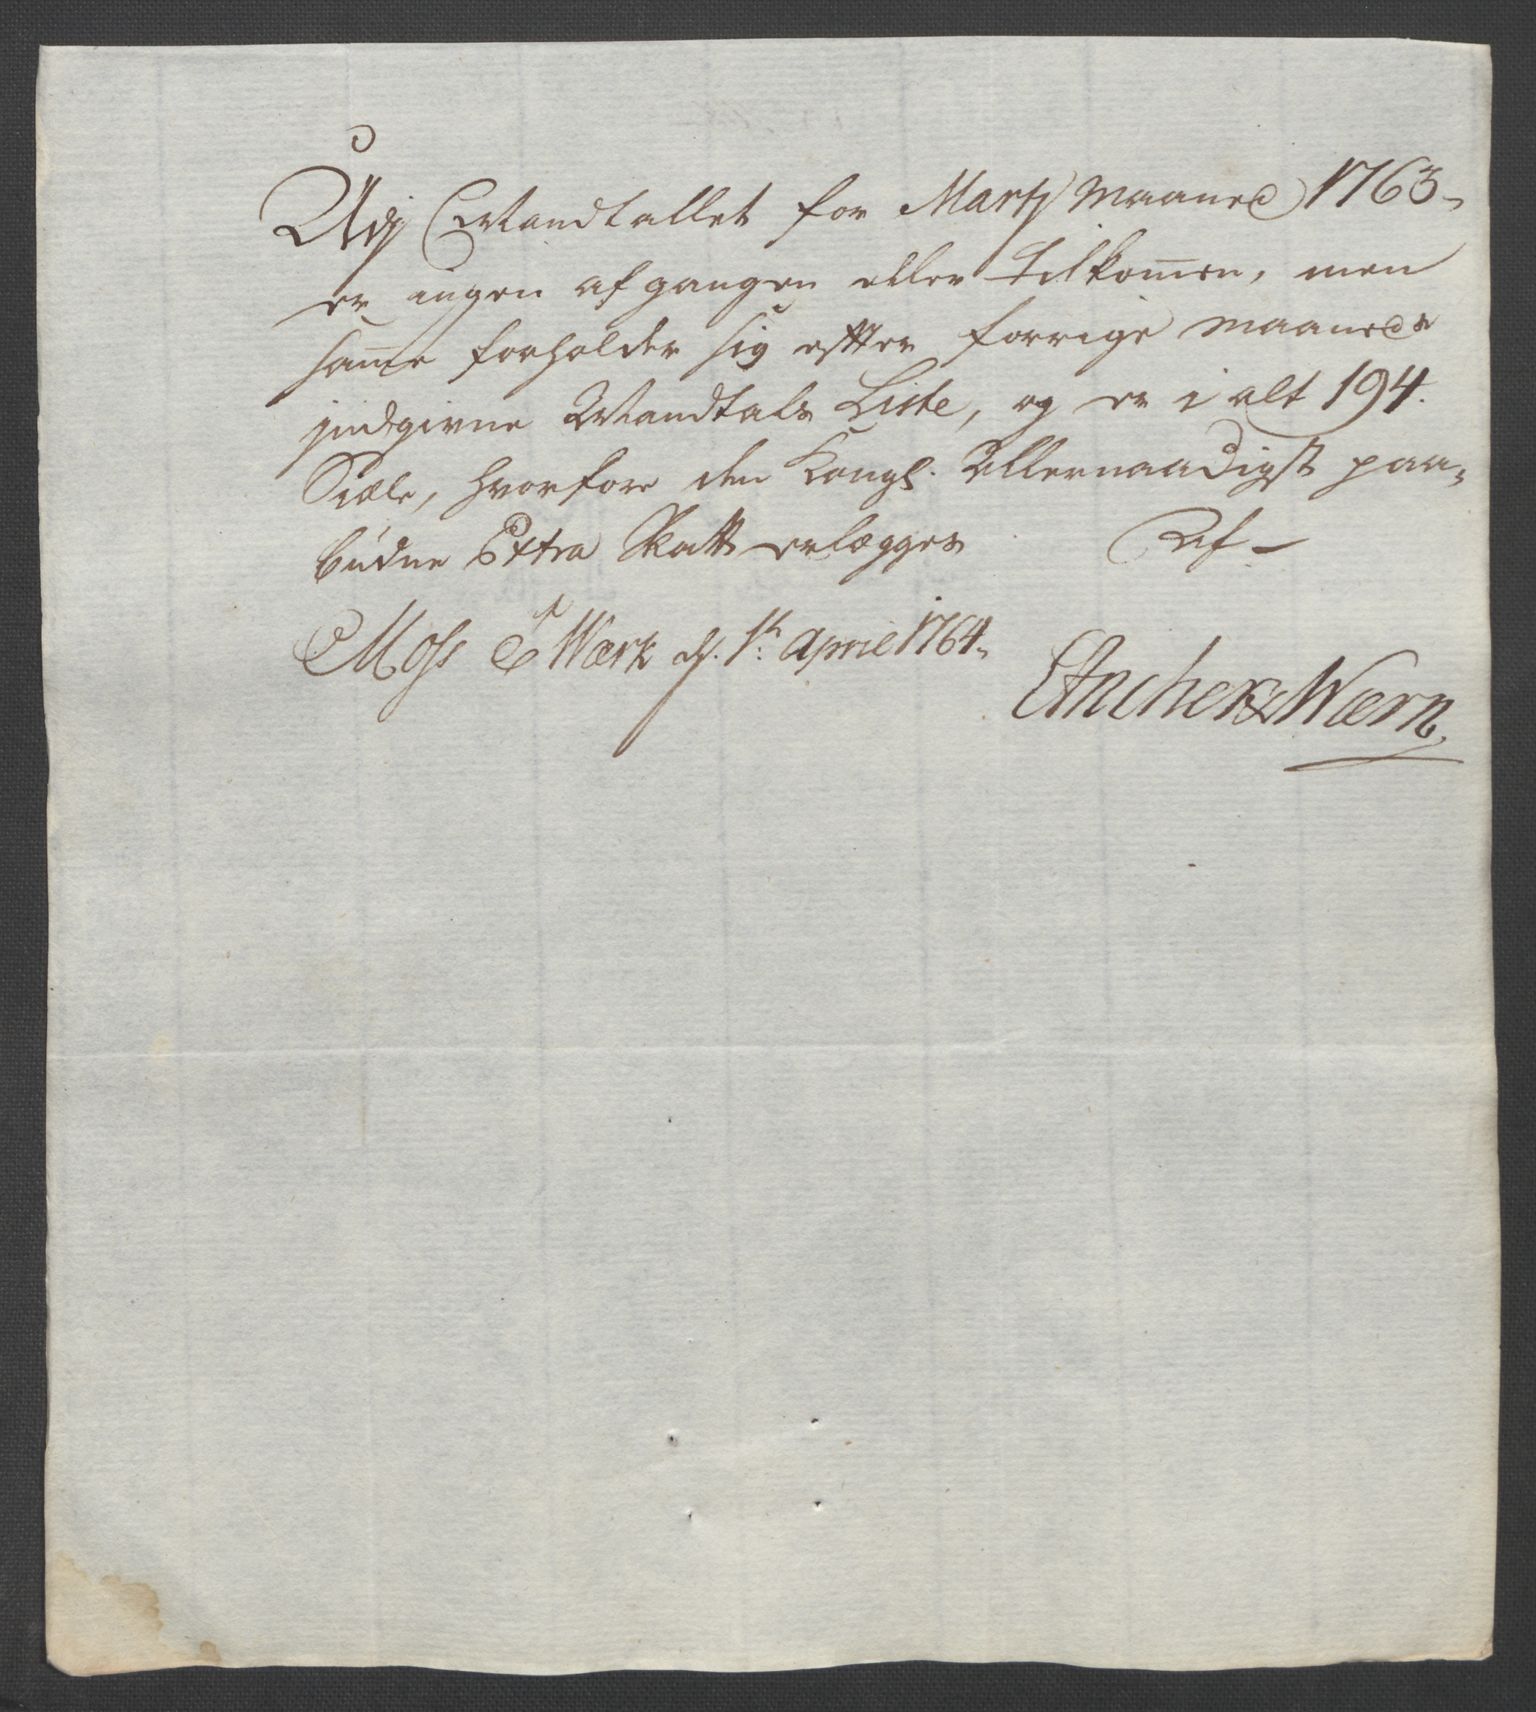 Udj Mandtallet for Martj Maaned 1763
er ingen afgangen eller tilkom̅en, men
sam̅e forholder sig efter forrige Maaneds
jndgivne Mandtals Liste, og er i alt 194.
Siæle, hvorfore den Kongl. Allernaadigst paa-
budne Extra Skatt erlægges Af
Moss Værk d. 1te. April 1764.
E Ancher & Wærn